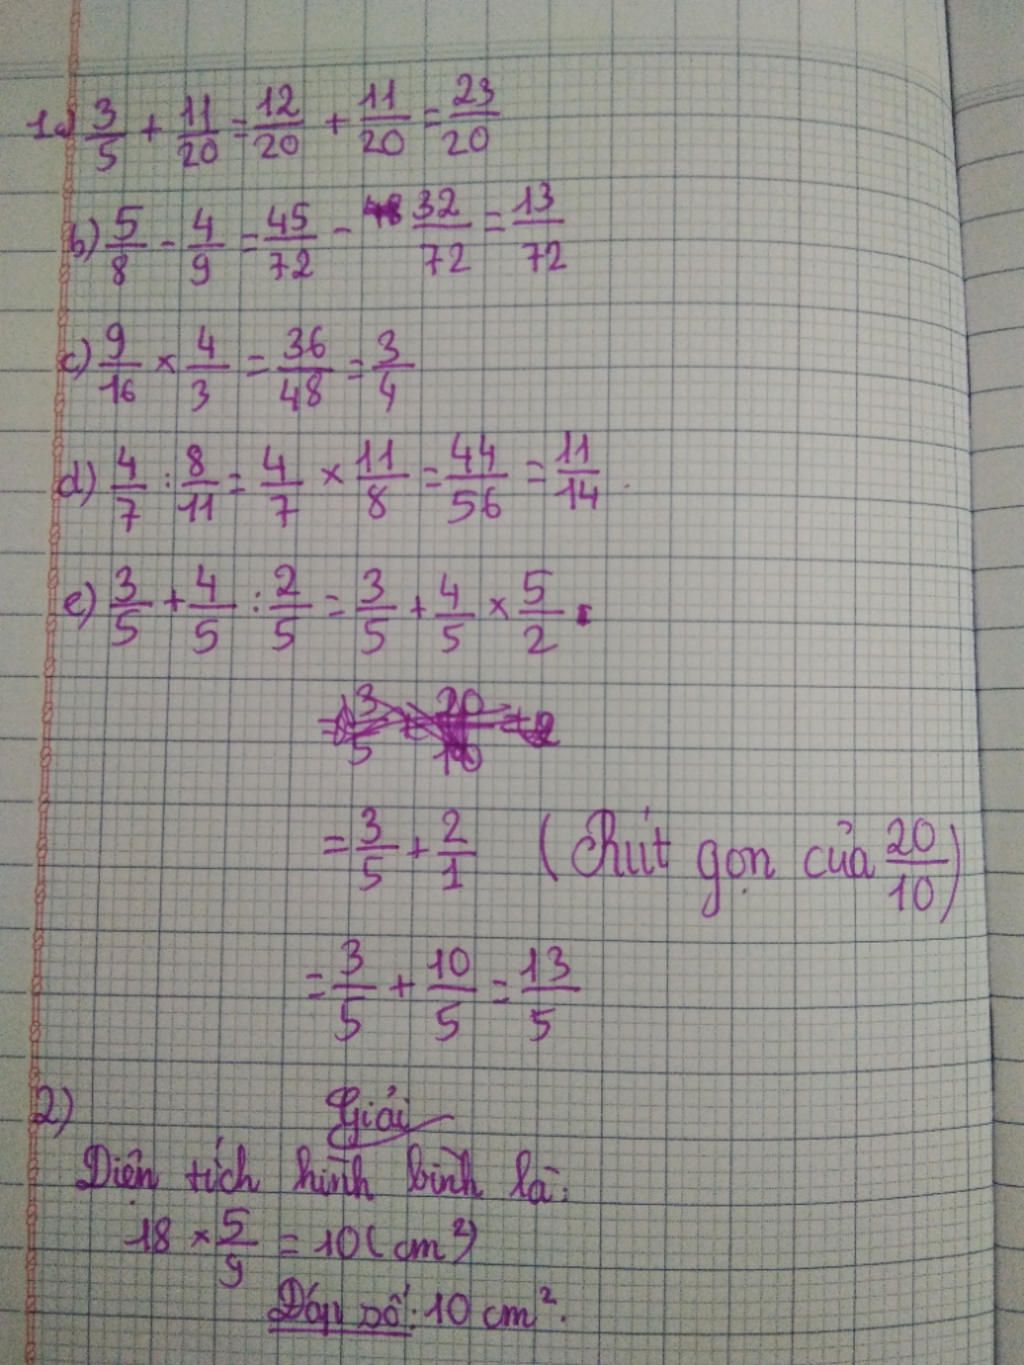 1a) 3/5 + 11/20 = 12/20 + 11/20 = 23/20
b) 5/8 - 4/9 = 45/72 - 32/72 = 13/72
c) 9/16 × 4/3 = 36/48 = 3/4
d) 4/7 : 8/11 = 4/7 × 11/8 = 44/56 = 11/14
e) 3/5 + 4/5 : 2/5 = 3/5 + 4/5 × 5/2
= 3/5 + 2/1 (Rút gọn của 20/10)
= 3/5 + 10/5 = 13/5
2) Giải
Diện tích hình bình là:
18 × 5/9 = 10 (cm²)
Đáp số: 10 cm².